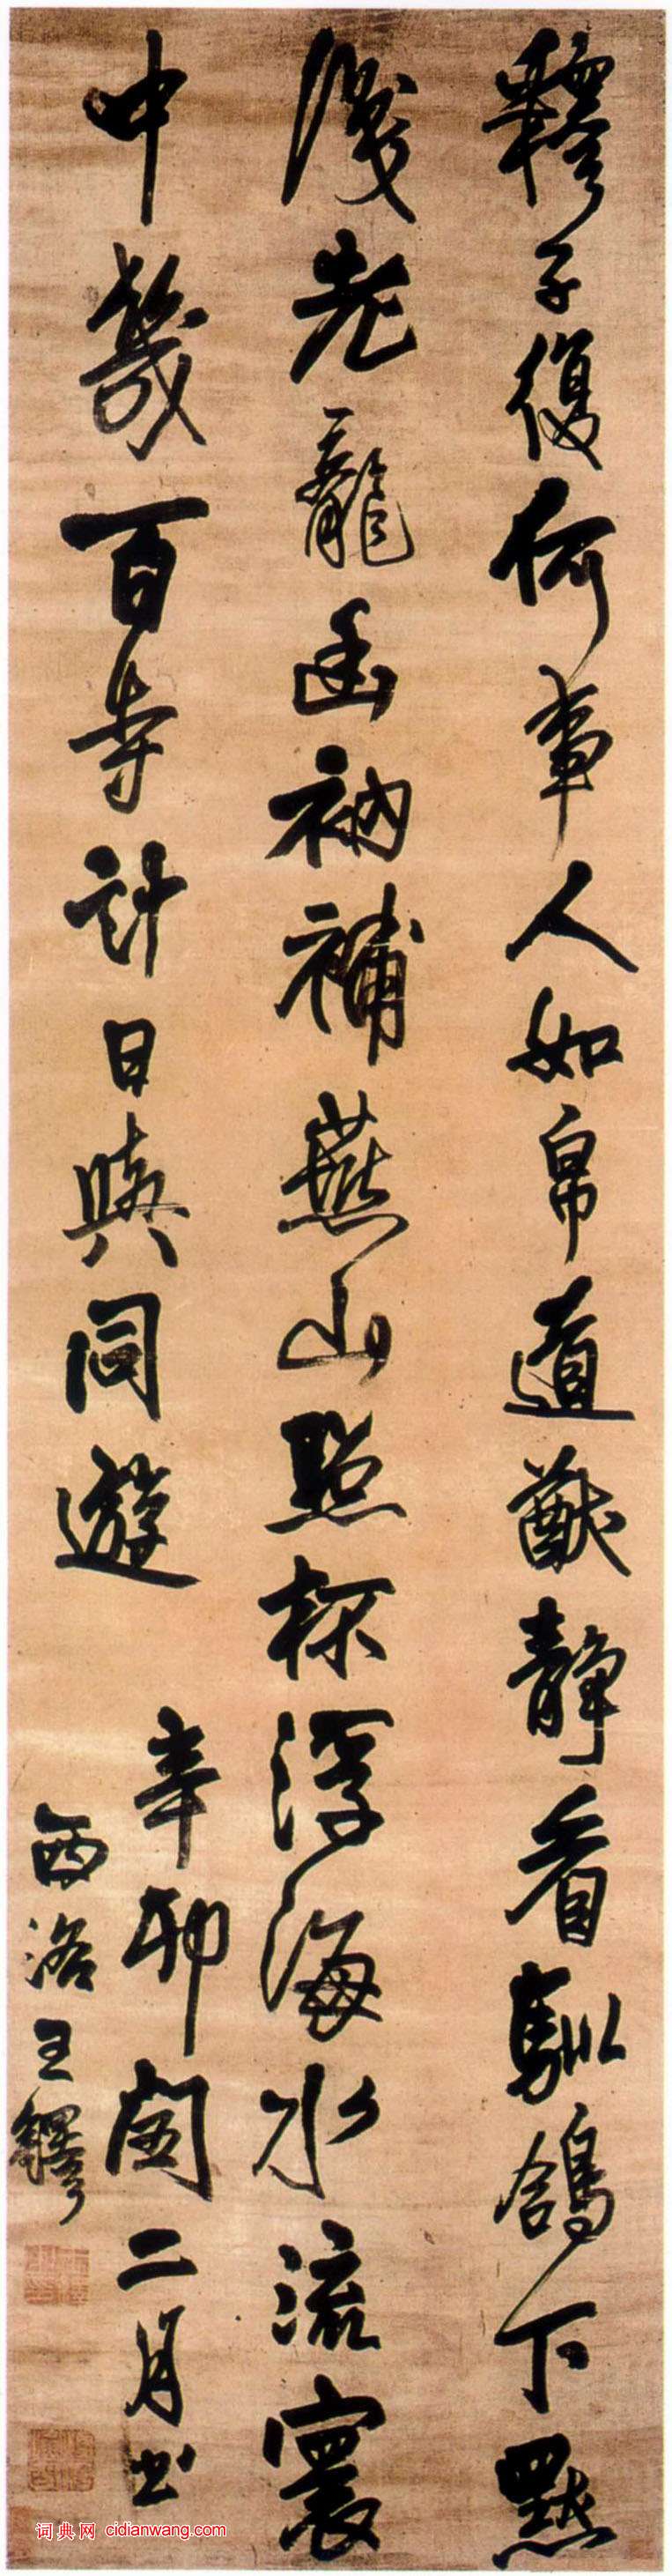 釋子復何事人如帛道猷靜看馴鴿下默
識老龍幽衲補燕山照杯浮海水流寰
中幾百寺計日與同遊 辛卯閏二月書
西洛王鐸
词典网 cidianwang.com